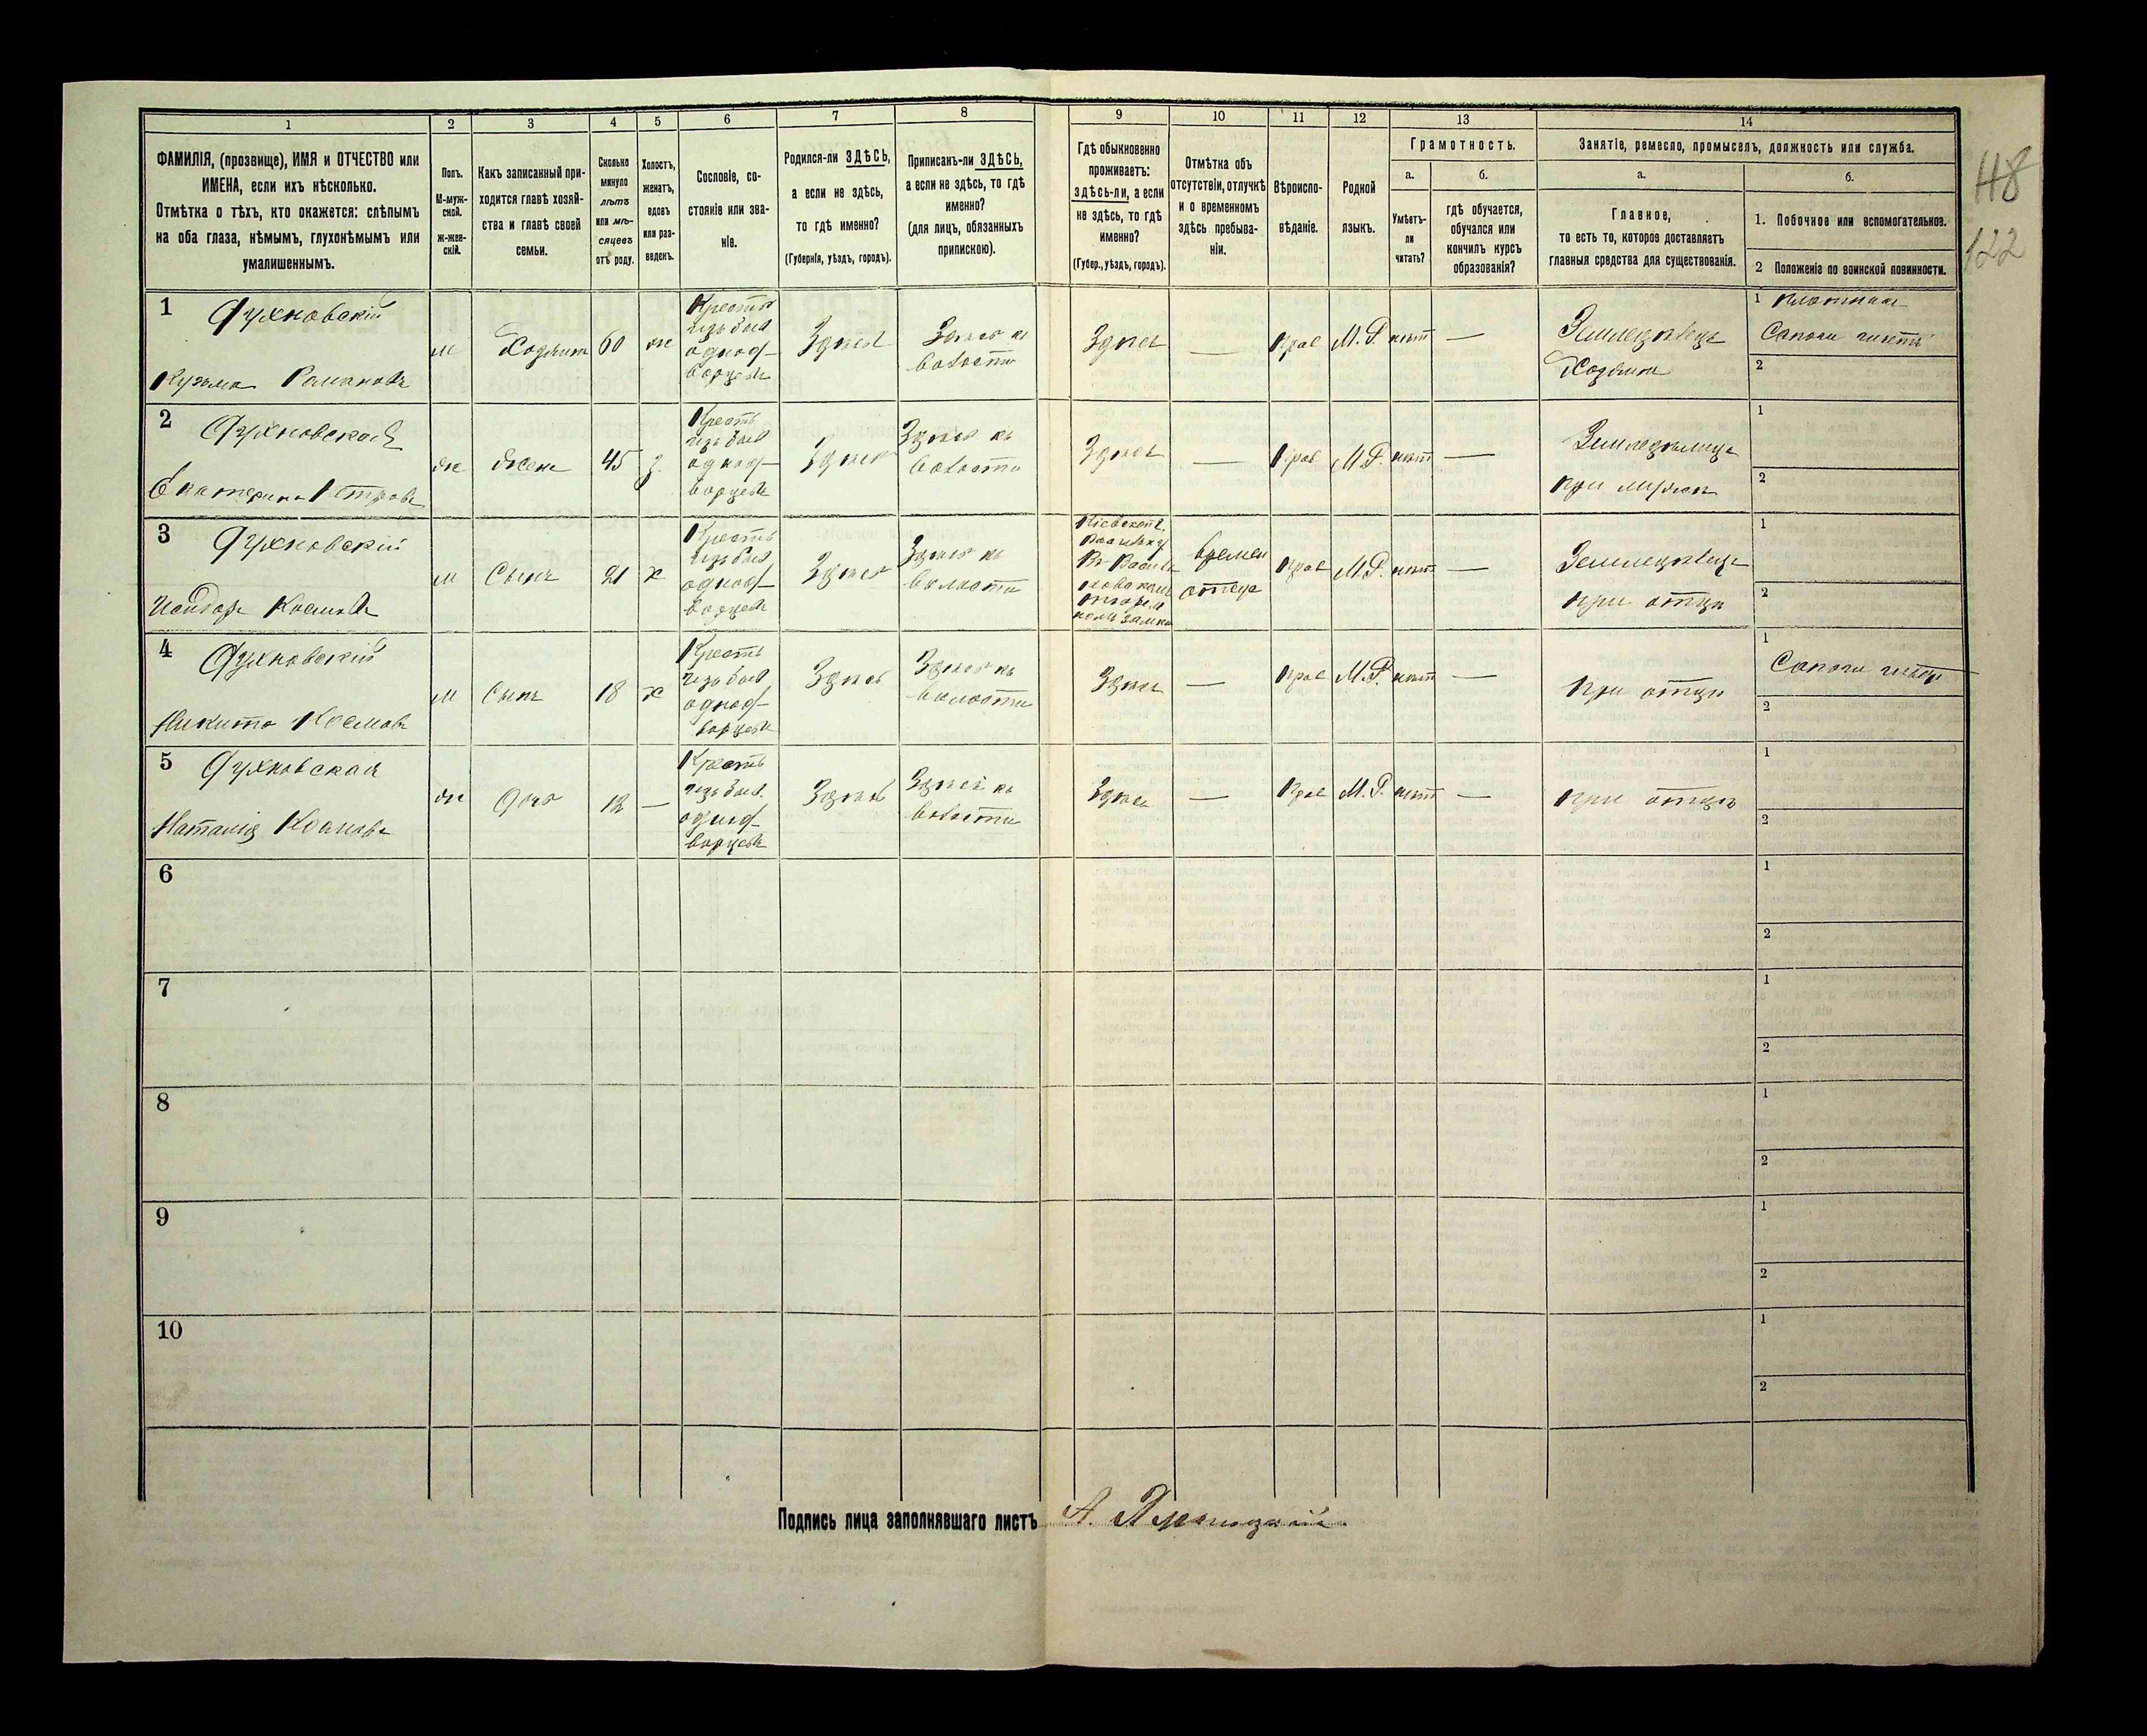 1
2
3
4
5
6
7
8
9
10
11
12
13
14
ФАМИЛІЯ, (прозвище), ИМЯ и ОТЧЕСТВО или
ИМЕНА, если ихъ нѣсколько.
Отмѣтка о тѣхъ, кто окажется: слѣпымъ
на оба глаза, нѣмымъ, глухонѣмымъ или
умалишеннымъ.
Полъ.
М-муж-
ской.
ж-жен-
скій.
Какъ записанный при-
ходится главѣ хозяй-
ства и главѣ своей
семьи.
Сколько
минуло
лѣтъ
или мѣ-
сяцевъ
отъ роду.
Холостъ,
женатъ,
вдовъ
или раз-
веденъ.
Сословіе, со-
стояніе или зва-
ніе.
Родился-ли ЗДѢСЬ,
а если не здѣсь,
то гдѣ именно?
(Губернія, уѣздъ, городъ).
Приписанъ-ли ЗДѢСЬ,
а если не здѣсь, то гдѣ
именно?
(для лицъ, обязанныхъ
припискою).
Гдѣ обыкновенно
проживаетъ:
здѣсь-ли, а если
не здѣсь, то гдѣ
именно?
(Губер., уѣздъ, городъ).
Отмѣтка объ
отсутствіи, отлучкѣ
и о временномъ
здѣсь пребыва-
ніи.
Вѣроиспо-
вѣданіе.
Родной
языкъ.
Грамотность.
а.
Умѣетъ-
ли
читать?
б.
гдѣ обучается,
обучался или
кончилъ курсъ
образованія?
Занятіе, ремесло, промыселъ, должность или служба.
а.
Главное,
то есть то, которое доставляетъ
главныя средства для существованія.
б.
1. Побочное или вспомогательное.
2 Положеніе по воинской повинности.
48
122
1
Духновскій
Кузьма Романовъ
м
Хозяинъ
60
ж
Крестья
изъ быв
однод-
ворцевъ
Здѣсь
Здѣсь въ
волости
Здѣсь
—
прав
М. Р.
нѣтъ
—
Земледѣлецъ
Хозяинъ
1
Сапоги шьетъ
2
2
Духновская
Екатерина Петрова
ж
жена
45
з.
Кресть
изъ быв
однод-
ворцевъ
Здѣсь
Здѣсь въ
волости
Здѣсь
—
прав
М.Р.
нѣтъ
—
Земледѣлица
при мужѣ
1
2
3
Духновскій
Исидоръ Космовъ
м
Сынъ
21
х
Кресть
изъ быв
однод-
ворцевъ
Здѣсь
Здѣсь въ
волости
Кіевской г.
времен
отсут
прав
М.Р.
нѣтъ
—
Земледѣлецъ
при отцѣ
1
2
4
Духновскій
Никита Космовъ
м
сынъ
18
х
Кресть
изъ быв
однод-
ворцевъ
Здѣсь
Здѣсь въ
волости
Здѣсь
—
прав
М.Р.
нѣтъ
—
при отцѣ
1
Сапоги шьетъ
2
5
Духновская
Наталія Космова
ж
дочь
12
—
Кресть
изъ быв.
однод-
ворцевъ
Здѣсь
Здѣсь въ
волости
Здѣсь
—
прав
М. Р.
нѣтъ
—
при отцѣ
1
2
6
1
2
7
1
2
8
1
2
9
1
2
10
1
2
Подпись лица заполнявшаго листъ
А.